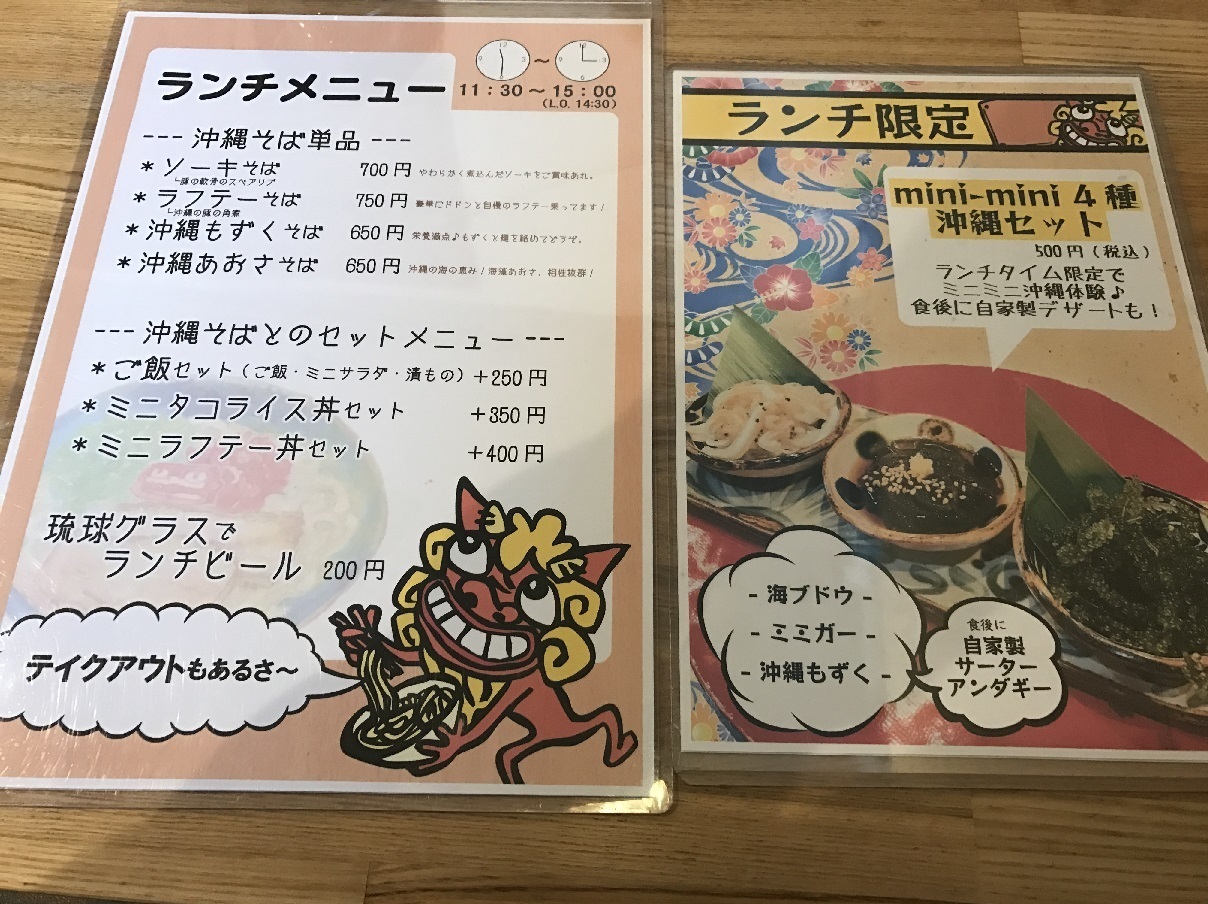 ランチメニュー
11：30～15：00
(L.O. 14:30)
--- 沖縄そば単品 ---
＊ソーキそば 700円 やわらかく煮込んだソーキをご賞味あれ。
└豚の軟骨のスペアリブ
＊ラフテーそば 750円 豪華にドドンと自慢のラフテー乗ってます！
└沖縄の豚の角煮
＊沖縄もずくそば 650円 栄養満点♪もずくと麺を絡めてどうぞ。
＊沖縄あおさそば 650円 沖縄の海の恵み！海藻あおさ、相性抜群！
--- 沖縄そばとのセットメニュー ---
＊ご飯セット（ご飯・ミニサラダ・漬もの）＋250円
＊ミニタコライス丼セット ＋350円
＊ミニラフテー丼セット ＋400円
琉球グラスで
ランチビール 200円
テイクアウトもあるさ～
ランチ限定
mini-mini 4種
沖縄セット
500円（税込）
ランチタイム限定で
ミニミニ沖縄体験♪
食後に自家製デザートも！
- 海ブドウ -
- ミミガー -
- 沖縄もずく -
食後に
自家製
サーター
アンダギー